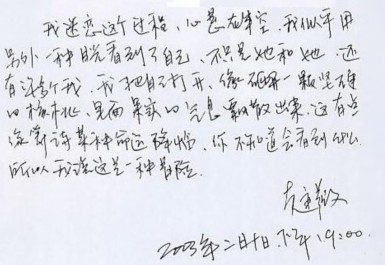 我迷恋这个过程，心悬在半空，我似乎用
另外一种目光看到了自己，不只是她和她，还
有许多个我。我把自己打开，像砸开一颗坚硬
的核桃，里面果实的气息飘散出来。这有些
像等待某种命运降临，你不知道会看到什么，
所以我说这是一种冒险。
2003年二月十日.下午.9:00.